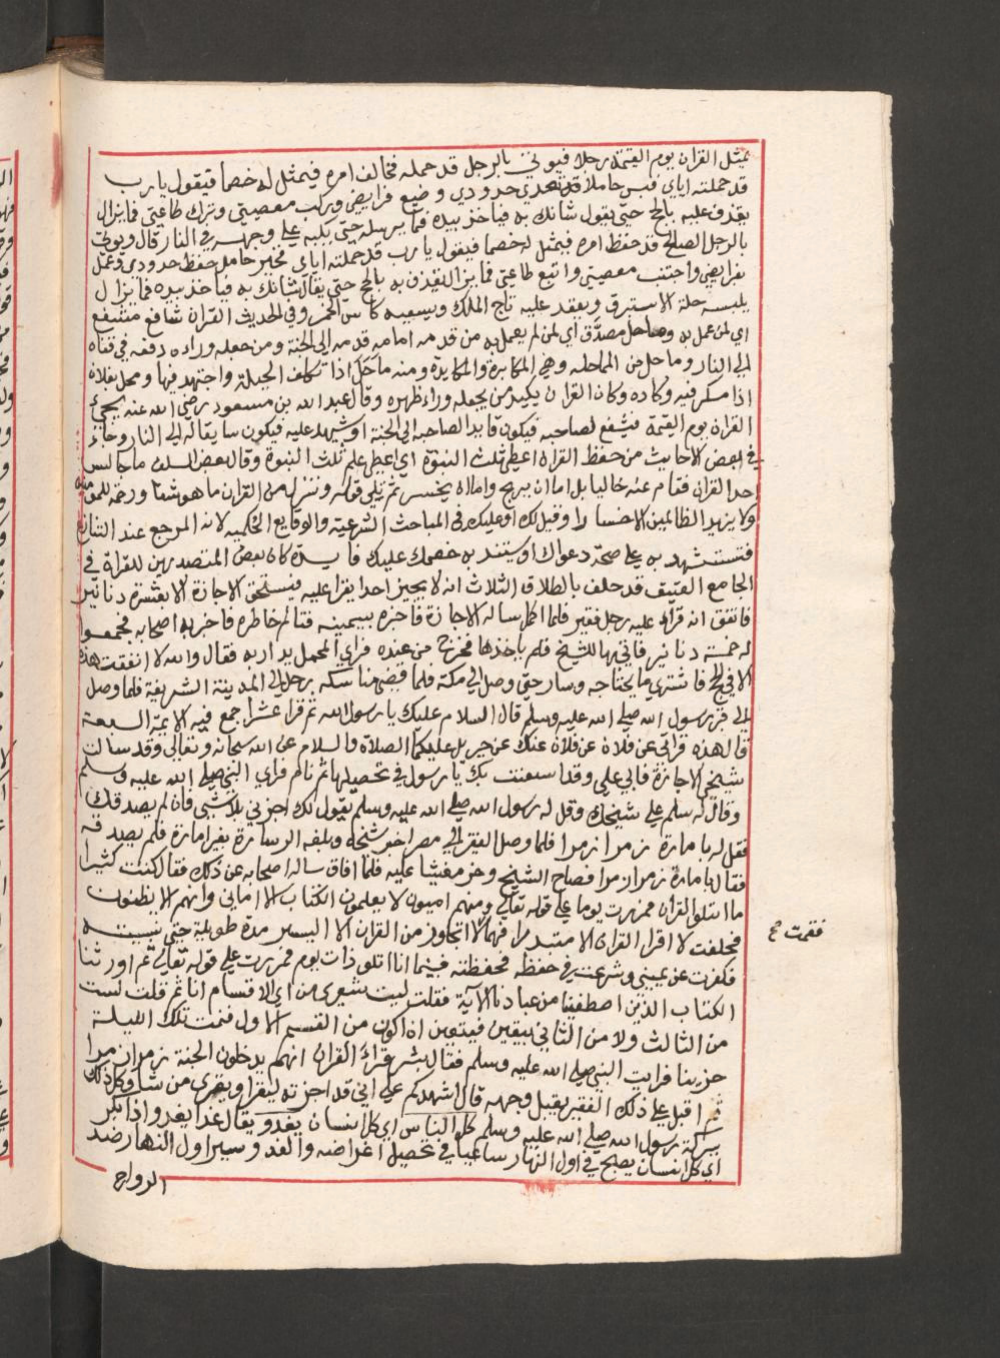 يمثل القران يوم القيمة رجلا فيوتي بالرجل قد حمله فخالف امره فيمثل له خصما فيقول يا رب
قد حملته اياي فبيس حاملا قد تعدي حدودي وضيع فرايضي وركب معصيتي وترك طاعتي فما يزال
يقذف عليه بالحجج حتي يقول شانك به فياخذ بيده فما يرسله حتي يكبه علي وجهه في النار قال ويوتي
بالرجل الصالح قد حفظ امره فيمثل له خصما فيقول يا رب قد حملته اياي فخير حامل حفظ حدودي وعمل
بفرايضي واجتنب معصيتي واتبع طاعتي فما يزال يقذف به بالحجج حتي يقال شانك به فياخذ بيده فما يزال
يلبسه حلة الاستبرق ويعقد عليه تاج الملك ويسقيه كاس الخمر وفي الحديث القران شافع مشفع
اي لمن عمل به وماحل مصدق اي لمن لم يعمل به من قدمه امامه قدمه الي الجنة ومن جعله وراه دفعه في قفاه
الي النار وماحل من المماحله وهي المكابرة والمكايدة ومنه ماحل اذا تكلف الحيلة واجتهد فيها ومحل بفلان
اذا مكر فيه وكاده وكان القران يكيد من يجعله وراء ظهره وقال عبد الله بن مسعود رضي الله عنه يجيء
القران يوم القيمة فيشفع لصاحبه فيكون قايدا لصاحبه الي الجنة او يشهد عليه فيكون سايقا له الي النار وجاء
في بعض الاحاديث من حفظ القران اعطي ثلث النبوة اي اعطي علم ثلث النبوة وقال بعض السلف ما جالس
احد القران فقام عنه خاليا بل اما ان يربح واما ان يخسر ثم تلي قوله وننزل من القران ما هو شفا ورحمة للمومنين
ولا يزيد الظالمين الا خسارا وقيل لك او عليك في المباحث الشرعية والوقايع الحكمية لانه المرجع عند التنازع
فتستشهد به علي صحة دعواك او يستند به خصمك عليك فايدة كان بعض المتصدرين للقراة في
الجامع العتيق قد حلف بالطلاق الثلاث انه لا يجيز احدا يقرا عليه فيستحق الاجازة الا بعشرة دنانير
فاتفق انه قرا عليه رجل فقير فلما اكمل ساله الاجازة فاخبره بيمينه فتالم خاطره فاخبر به اصحابه فجمعوا
له خمسة دنانير فاتي بها للشيخ فلم ياخذها فخرج من عنده فراي المحمل يدار به فقال والله لا انفقت هذه
الا في الحج فاشتري ما يحتاجه وسار حتي وصل الي مكة فلما قضي مناسكه رحل الي المدينة الشريفة فلما وصل
الي قبر رسول الله صلي الله عليه وسلم قال السلام عليك يا رسول الله ثم قرا عشرا جمع فيه الايمة السبعة
قال هذه قراتي عن فلان عن فلان عنك عن جبريل عليكما الصلاة والسلام عن الله سبحانه وتعالي وقد سالت
شيخي الاجازة فابي علي وقد استعنت بك يا رسول في تحصيلها ثم نام فراي النبي صلي الله عليه وسلم
وقال له سلم علي شيخك وقل له رسول الله صلي الله عليه وسلم يقول لك اجزني بلا شيي فان لم يصدقك
فقل له بامارة زمرا زمرا فلما وصل الفقير الي مصر اخبر شيخه وبلغه الرسالة بغير امارة فلم يصدقه
فقال بامارة زمرا زمرا فصاح الشيخ وخر مغشيا عليه فلما افاق ساله اصحابه عن ذلك فقال كنت كثيرا
ما اتلوا القران فمررت يوما علي قوله تعالي ومنهم اميون لا يعلمون الكتاب الا اماني وان هم الا يظنون
فحلفت لا اقرا القران الا متدبرا فهما لا اتجاوز من القران الا اليسير مدة طويلة حتي نسيته
فكفرت عن يميني وشرعت في حفظه فحفظته فبينما انا اتلو ذات يوم فمررت علي قوله تعالي ثم اورثنا
الكتاب الذين اصطفينا من عبادنا الاية فقلت ليت شعري من اي الاقسام انا ثم قلت لست
من الثالث ولا من الثاني بيقين فيتعين ان اكون من القسم الاول فنمت تلك الليلة
حزينا فرايت النبي صلي الله عليه وسلم فقال بشر قراء القران انهم يدخلون الجنة زمرا زمرا
ثم اقبل علي ذلك الفقير يقبل وجهه قال اشهدكم علي اني قد اجزته ليقرا ويقري من شا وكل ذلك
ببركة رسول الله صلي الله عليه وسلم كل الناس اي كل انسان يغدو يقال غدا يغدو اذا بكر
اي كل انسان يصبح في اول النهار ساعيا في تحصيل اغراضه والغدو سير اول النهار ضد
الرواح
فقمت صح